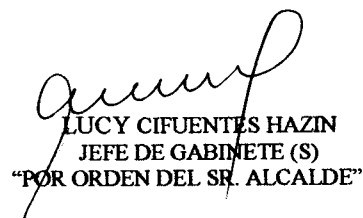 LUCY CIFUENTES HAZIN
JEFE DE GABINETE (S)
"POR ORDEN DEL SR. ALCALDE"